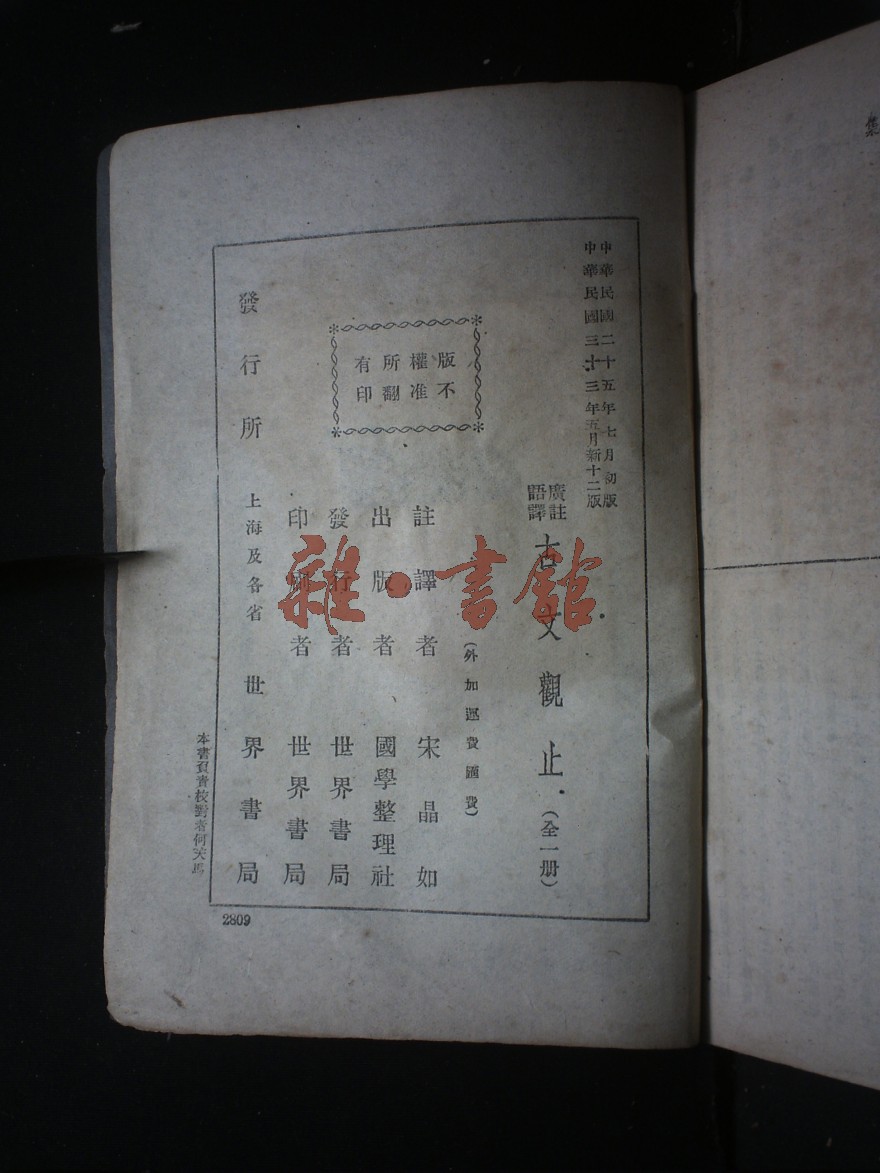 中華民國二十五年七月初版
中華民國三十三年五月新十二版
廣註
語譯
古文觀止(全一册)
(外加運費匯費)
版權所有
不准翻印
註譯者 宋晶如
出版者 國學整理社
發行者 世界書局
印刷者 世界書局
發行所 上海及各省 世界書局
本書負責校對者何天馬
2809
雜·書館
集